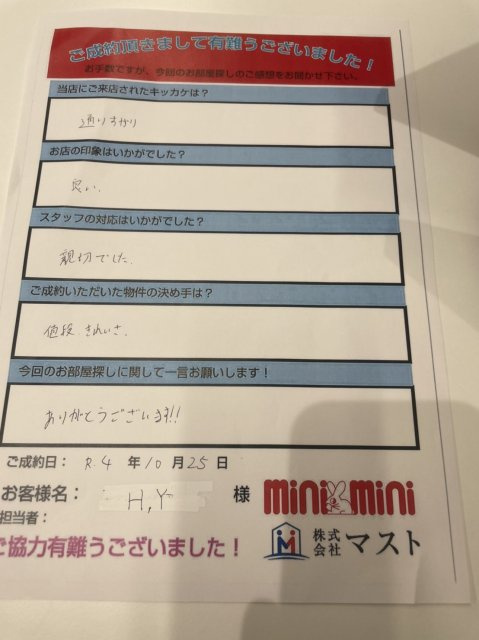 ご成約頂きまして有難うございました！
お手数ですが、今回のお部屋探しのご感想をお聞かせ下さい。
当店にご来店されたキッカケは？
通りすがり
お店の印象はいかがでした？
良い、
スタッフの対応はいかがでした？
親切でした。
ご成約いただいた物件の決め手は？
値段、きれいさ、
今回のお部屋探しに関して一言お願いします！
ありがとうございます!!
ご成約日： R.4 年 10 月 25 日
お客様名： H,Y 様
mini mini
担当者：
株式会社 マスト
ご協力有難うございました！